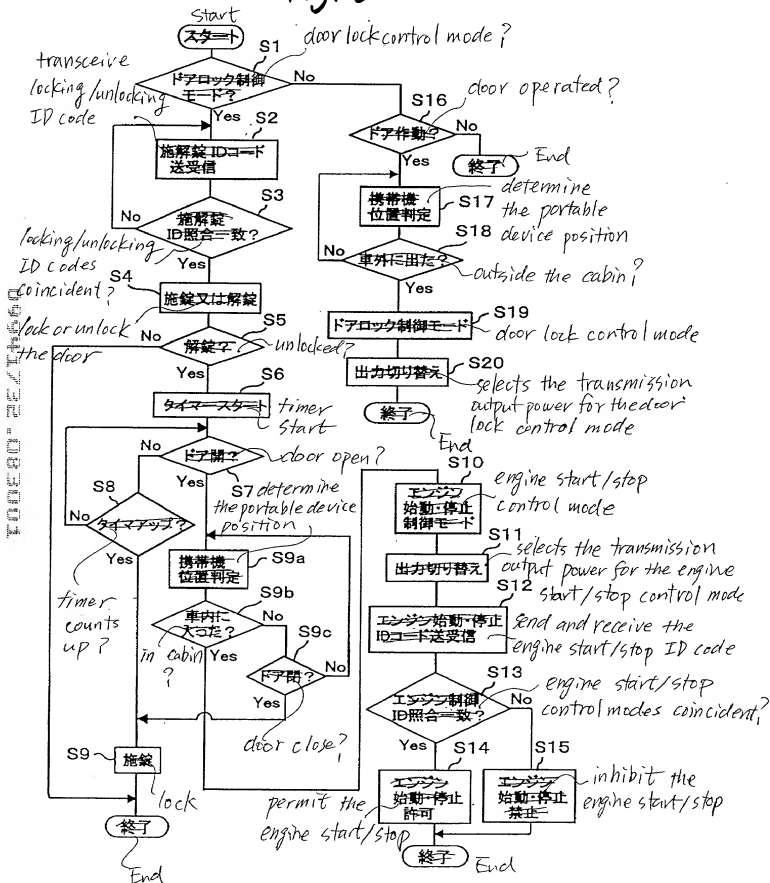 start
スタート
S1
door lock control mode?
transceive
locking/unlocking
ID code
ドアロック制御
モード?
No
Yes
S2
施解錠IDコード
送受信
S3
施解錠
ID照合一致?
No
Yes
locking/unlocking
ID codes
coincident?
S4
施錠又は解錠
lock or unlock
the door
S5
解錠?
unlocked?
No
Yes
S6
タイマースタート
timer
start
ドア開?
door open?
No
Yes
S7
S8
タイマアップ?
No
Yes
timer
counts
up?
determine
the portable device
position
携帯機
位置判定
S9a
S9b
車内に
入った?
No
Yes
in cabin
?
S9c
ドア閉?
No
Yes
door close?
S9
施錠
lock
終了
End
S16
door operated?
ドア作動?
No
Yes
終了
End
携帯機
位置判定
S17
determine
the portable
device position
S18
車外に出た?
No
Yes
outside the cabin?
S19
ドアロック制御モード
door lock control mode
S20
出力切り替え
selects the transmission
output power for the door
lock control mode
終了
End
S10
エンジン
始動・停止
制御モード
engine start/stop
control mode
S11
出力切り替え
selects the transmission
output power for the engine
start/stop control mode
S12
エンジン始動・停止
IDコード送受信
send and receive the
engine start/stop ID code
S13
エンジン制御
ID照合一致?
engine start/stop
control modes coincident?
No
Yes
S14
エンジン
始動・停止
許可
permit the
engine start/stop
S15
エンジン
始動・停止
禁止
inhibit the
engine start/stop
終了
End